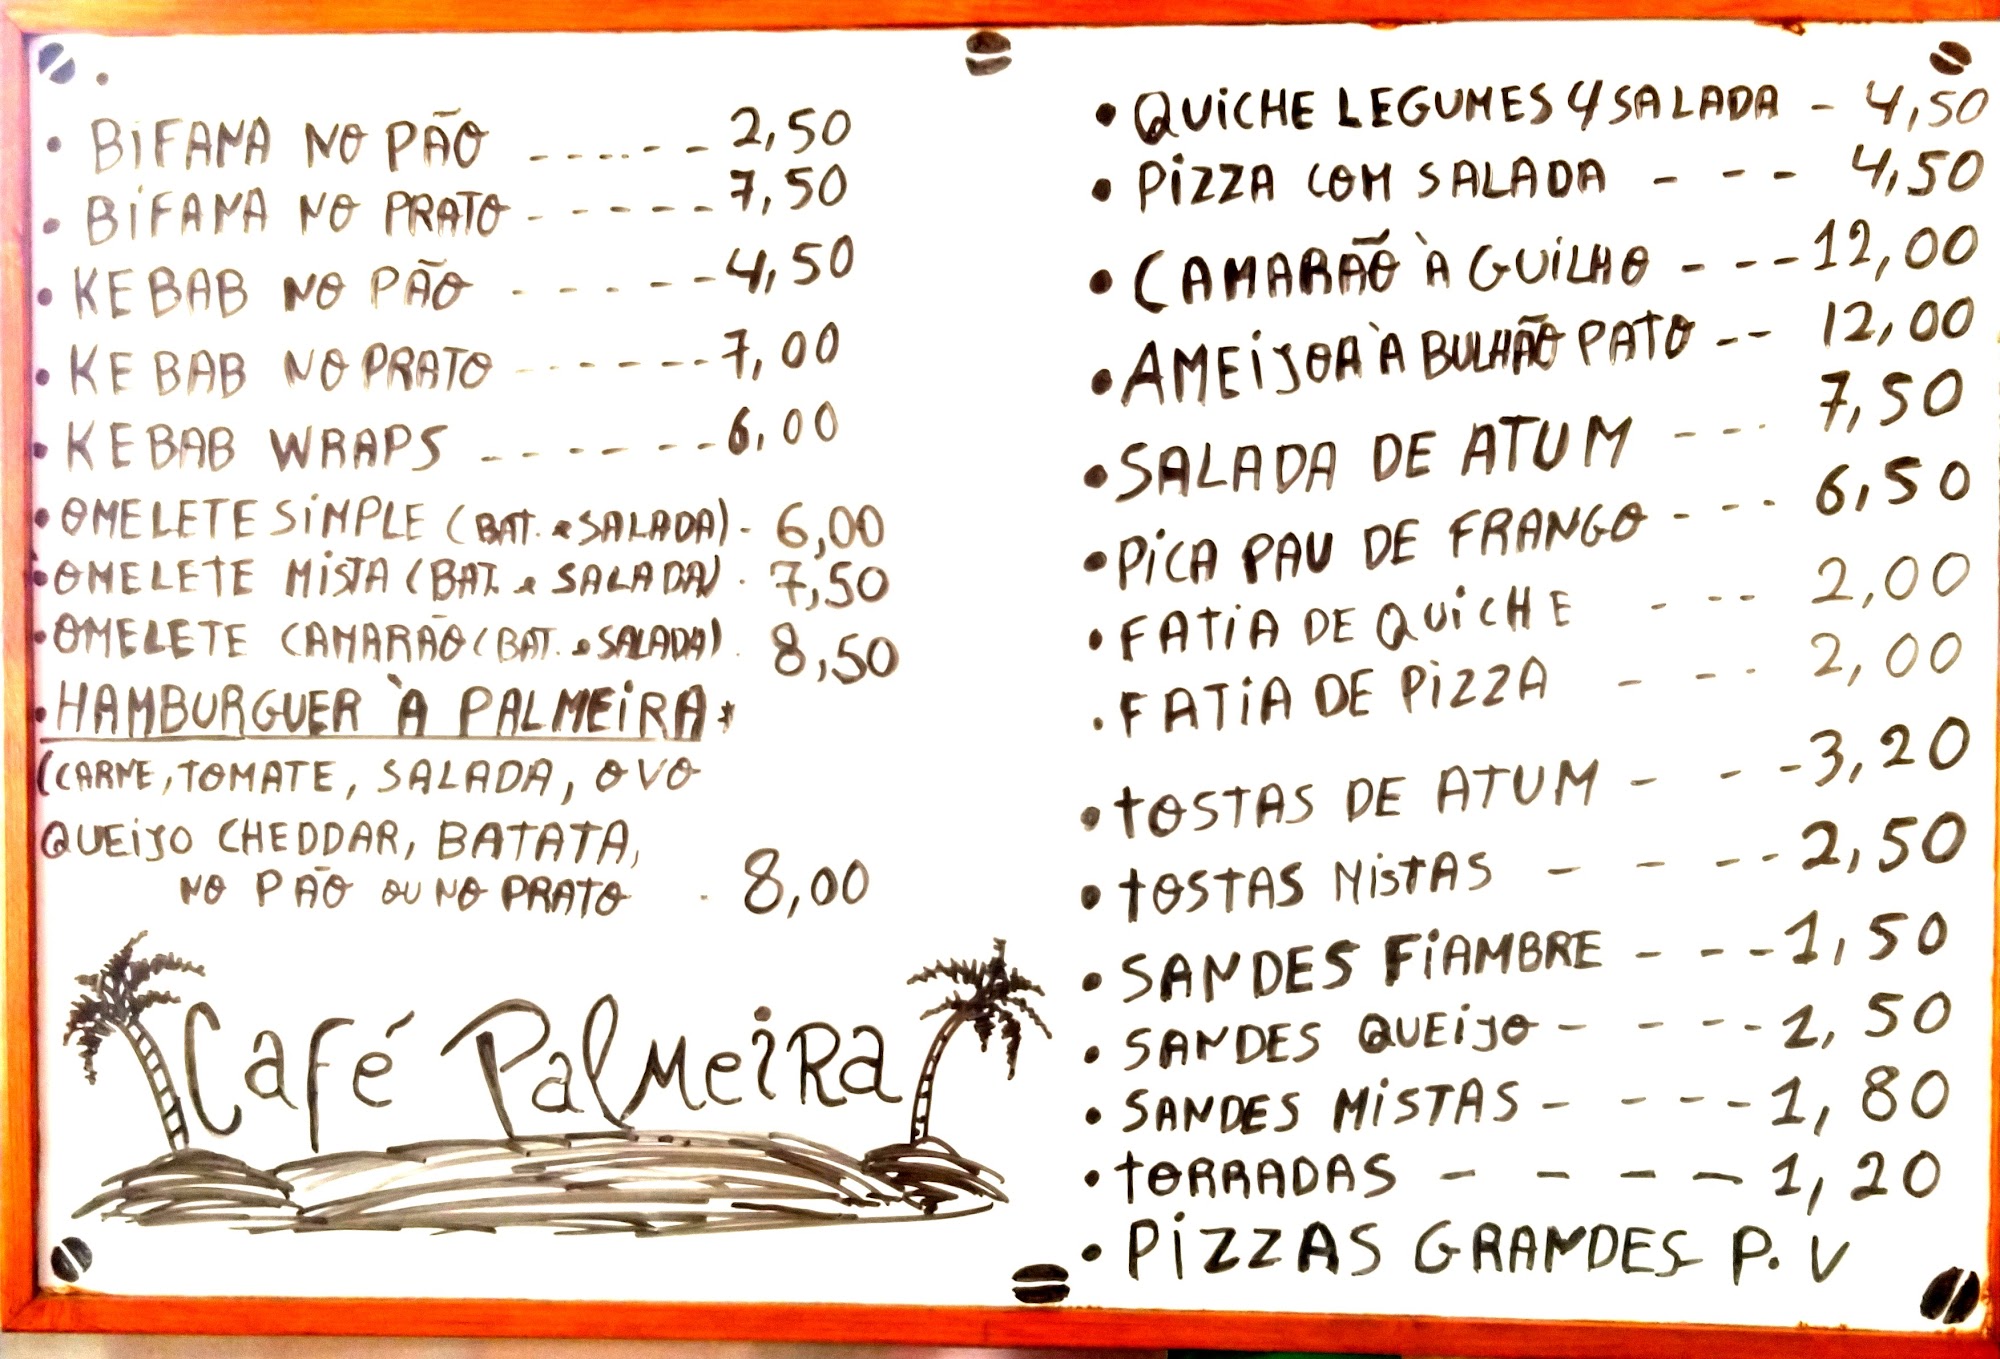 • BiFANA NO PÃO ------- 2,50
• BiFANA NO PRATO ------ 7,50
• KEBAB NO PÃO ------ 4,50
• KEBAB NO PRATO ------ 7,00
• KEBAB WRAPS ------- 6,00
• OMELETE SiMPLE (BAT. e SALADA) - 6,00
• OMELETE MiSTA (BAT. e SALADA) . 7,50
• OMELETE CAMARÃO (BAT. e SALADA) . 8,50
• HAMBURGUER À PALMEiRA *
(CARNE, TOMATE, SALADA, OVO
QUEiJO CHEDDAR, BATATA,
NO PÃO OU NO PRATO . 8,00
Café Palmeira
• QUiCHE LEGUMES Y SALADA - 4,50
• PiZZA COM SALADA --- 4,50
• CAMARÃO À GUiLHO --- 12,00
• AMEiJOA À BULHÃO PATO -- 12,00
• SALADA DE ATUM --- 7,50
• PiCA PAU DE FRANGO --- 6,50
• FATiA DE QUiCHE --- 2,00
• FATiA DE PiZZA --- 2,00
• TOSTAS DE ATUM --- 3,20
• TOSTAS MiSTAS ---- 2,50
• SANDES FiAMBRE --- 1,50
• SANDES QUEiJO ---- 1,50
• SANDES MiSTAS ---- 1,80
• TORRADAS ---- 1,20
• PiZZAS GRANDES P. V